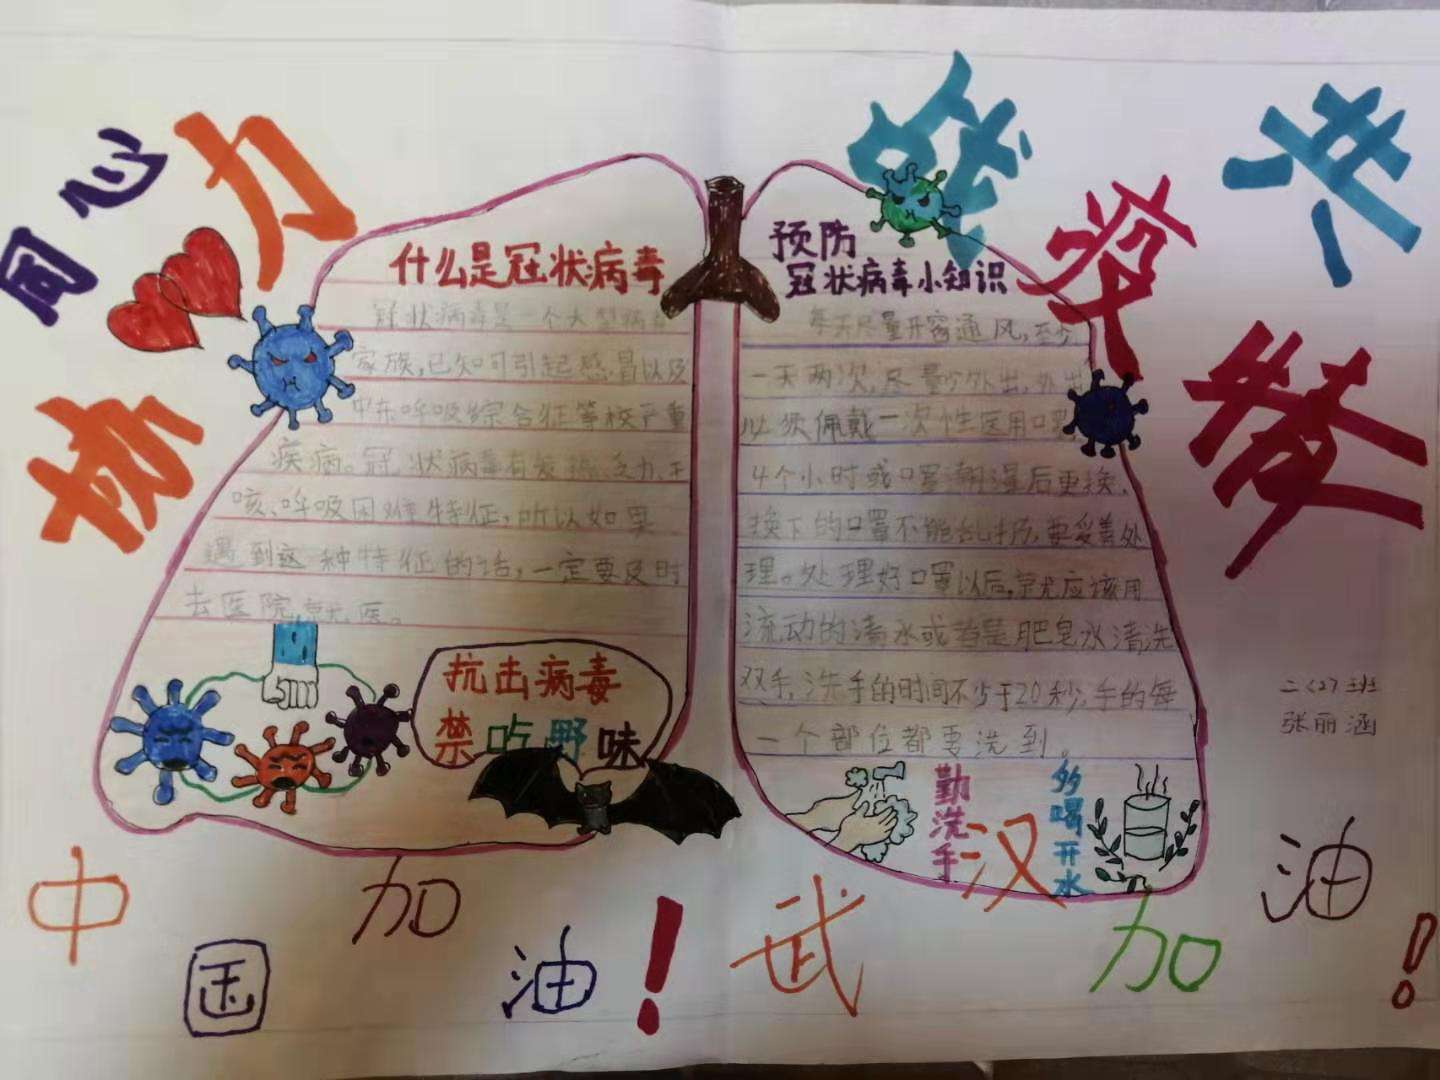 同心
协力
共
战
疫
楚
什么是冠状病毒
冠状病毒是一个大型病毒
家族,已知可引起感冒以及
中东呼吸综合征等较严重
疾病。冠状病毒有发热、乏力、干
咳、呼吸困难特征,所以如果
遇到这种特征的话,一定要及时
去医院就医。
抗击病毒
禁吃野味
预防
冠状病毒小知识
每天尽量开窗通风,至少
一天两次,尽量少外出,外出
必须佩戴一次性医用口罩
4个小时或口罩潮湿后更换,
换下的口罩不能乱扔,要妥善处
理。处理好口罩以后,就应该用
流动的清水或者是肥皂水清洗
双手,洗手的时间不少于20秒,手的每
一个部位都要洗到。
勤洗手
多喝开水
二(2)班
张丽涵
中国加油!
武汉加油!